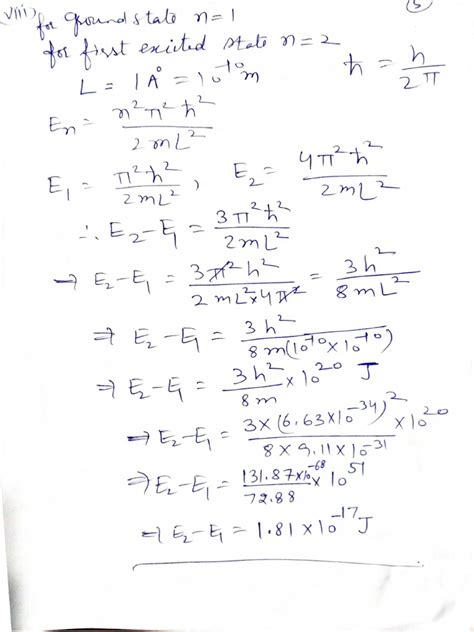 viii) for ground state n=1 (5)
for first excited state n=2
L = 1Å = 10⁻¹⁰m ħ = h/2π
Eₙ = n²π²ħ²/2mL²
E₁ = π²ħ²/2mL², E₂ = 4π²ħ²/2mL²
∴ E₂-E₁ = 3π²ħ²/2mL²
→ E₂-E₁ = 3π²h²/2mL²×4π² = 3h²/8mL²
⇒ E₂-E₁ = 3h²/8m(10⁻¹⁰×10⁻¹⁰)
⇒ E₂-E₁ = 3h²/8m × 10²⁰ J
⇒ E₂-E₁ = 3×(6.63×10⁻³⁴)²/8×9.11×10⁻³¹ ×10²⁰
⇒ E₂-E₁ = 131.87×10⁻⁶⁸/72.88 × 10⁵¹
⇒ E₂-E₁ = 1.81×10⁻¹⁷J